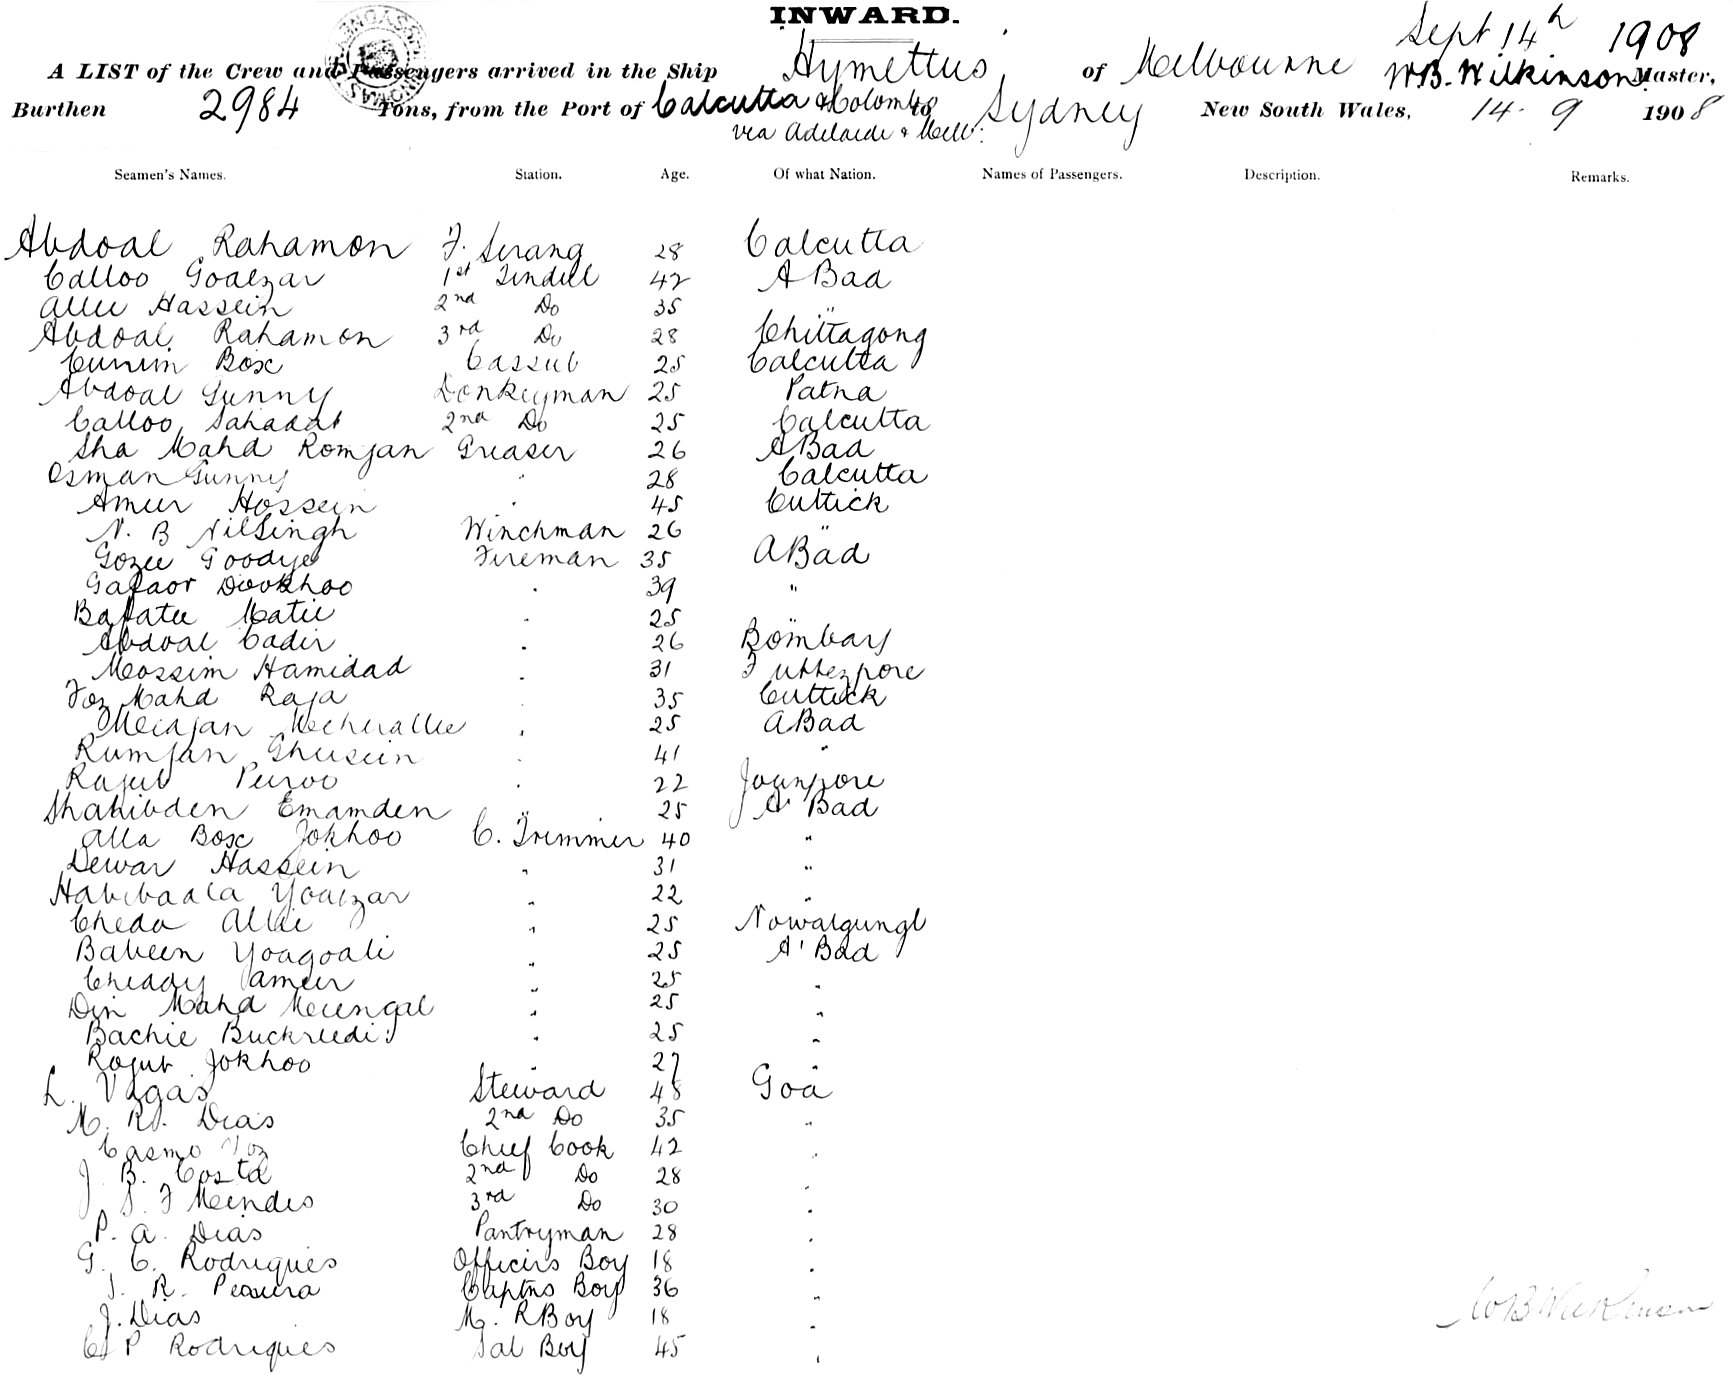 INWARD.
Sept 14th 1908
A LIST of the Crew and Passengers arrived in the Ship Hymettus of Melbourne W.B. Wilkinson Master,
Burthen 2984 Tons, from the Port of Calcutta & Colombo to Sydney New South Wales, 14. 9 1908
via Adelaide & Melb:
Seamen's Names. Station. Age. Of what Nation. Names of Passengers. Description. Remarks.
Abdoal Rahamon F. Serang 28 Calcutta
Calloo Goalzar 1st Tindell 42 A Bad
Allie Hassein 2nd Do 35 "
Abdoal Rahamon 3rd Do 28 Chittagong
Cunim Box Cassub 25 Calcutta
Abdoal Gunny Donkeyman 25 Patna
Calloo Sahadat 2nd Do 25 Calcutta
Sha Mahd Romjan Greaser 26 A Bad
Osman Gunny " 28 Calcutta
Ameer Hossein " 45 Cuttick
N. B Nilsingh Winchman 26 "
Gozee Goodye Fireman 35 A Bad
Gafaor Dookhoo " 39 "
Bafatee Matie " 25 "
Abdoal Cadir " 26 Bombay
Mossim Hamidad " 31 Futtezpore
Foz Mahd Raja " 35 Cuttick
Meajan Mecherallie " 25 A Bad
Rumjan Ghusein " 41 "
Rajub Peiroo " 22 Jounpore
Shahibden Emamden " 25 A' Bad
Alla Box Jokhoo C. Trimmer 40 "
Dewar Hassein " 31 "
Habibaala Yoalzar " 22 "
Cheda Allie " 25 Nowalgungl
Babeen Yoagoali " 25 A' Bad
Cheddy Ameer " 25 "
Din Mahd Meengal " 25 "
Bachie Buckreedi " 25 "
Rojub Jokhoo " 27 "
L. Vagas Steward 48 Goa
M. R. Dias 2nd Do 35 "
Casmo Voz Chief Cook 42 "
J. B. Costa 2nd Do 28 "
J. F Meindis 3rd Do 30 "
P. A. Dias Pantryman 28 "
G. C. Rodrigues Officirs Boy 18 "
J. R. Peasiera Captns Boy 36 "
J. Dias M. R Boy 18 "
C P Rodrigues Sal Boy 45 "
W B Wilkinson